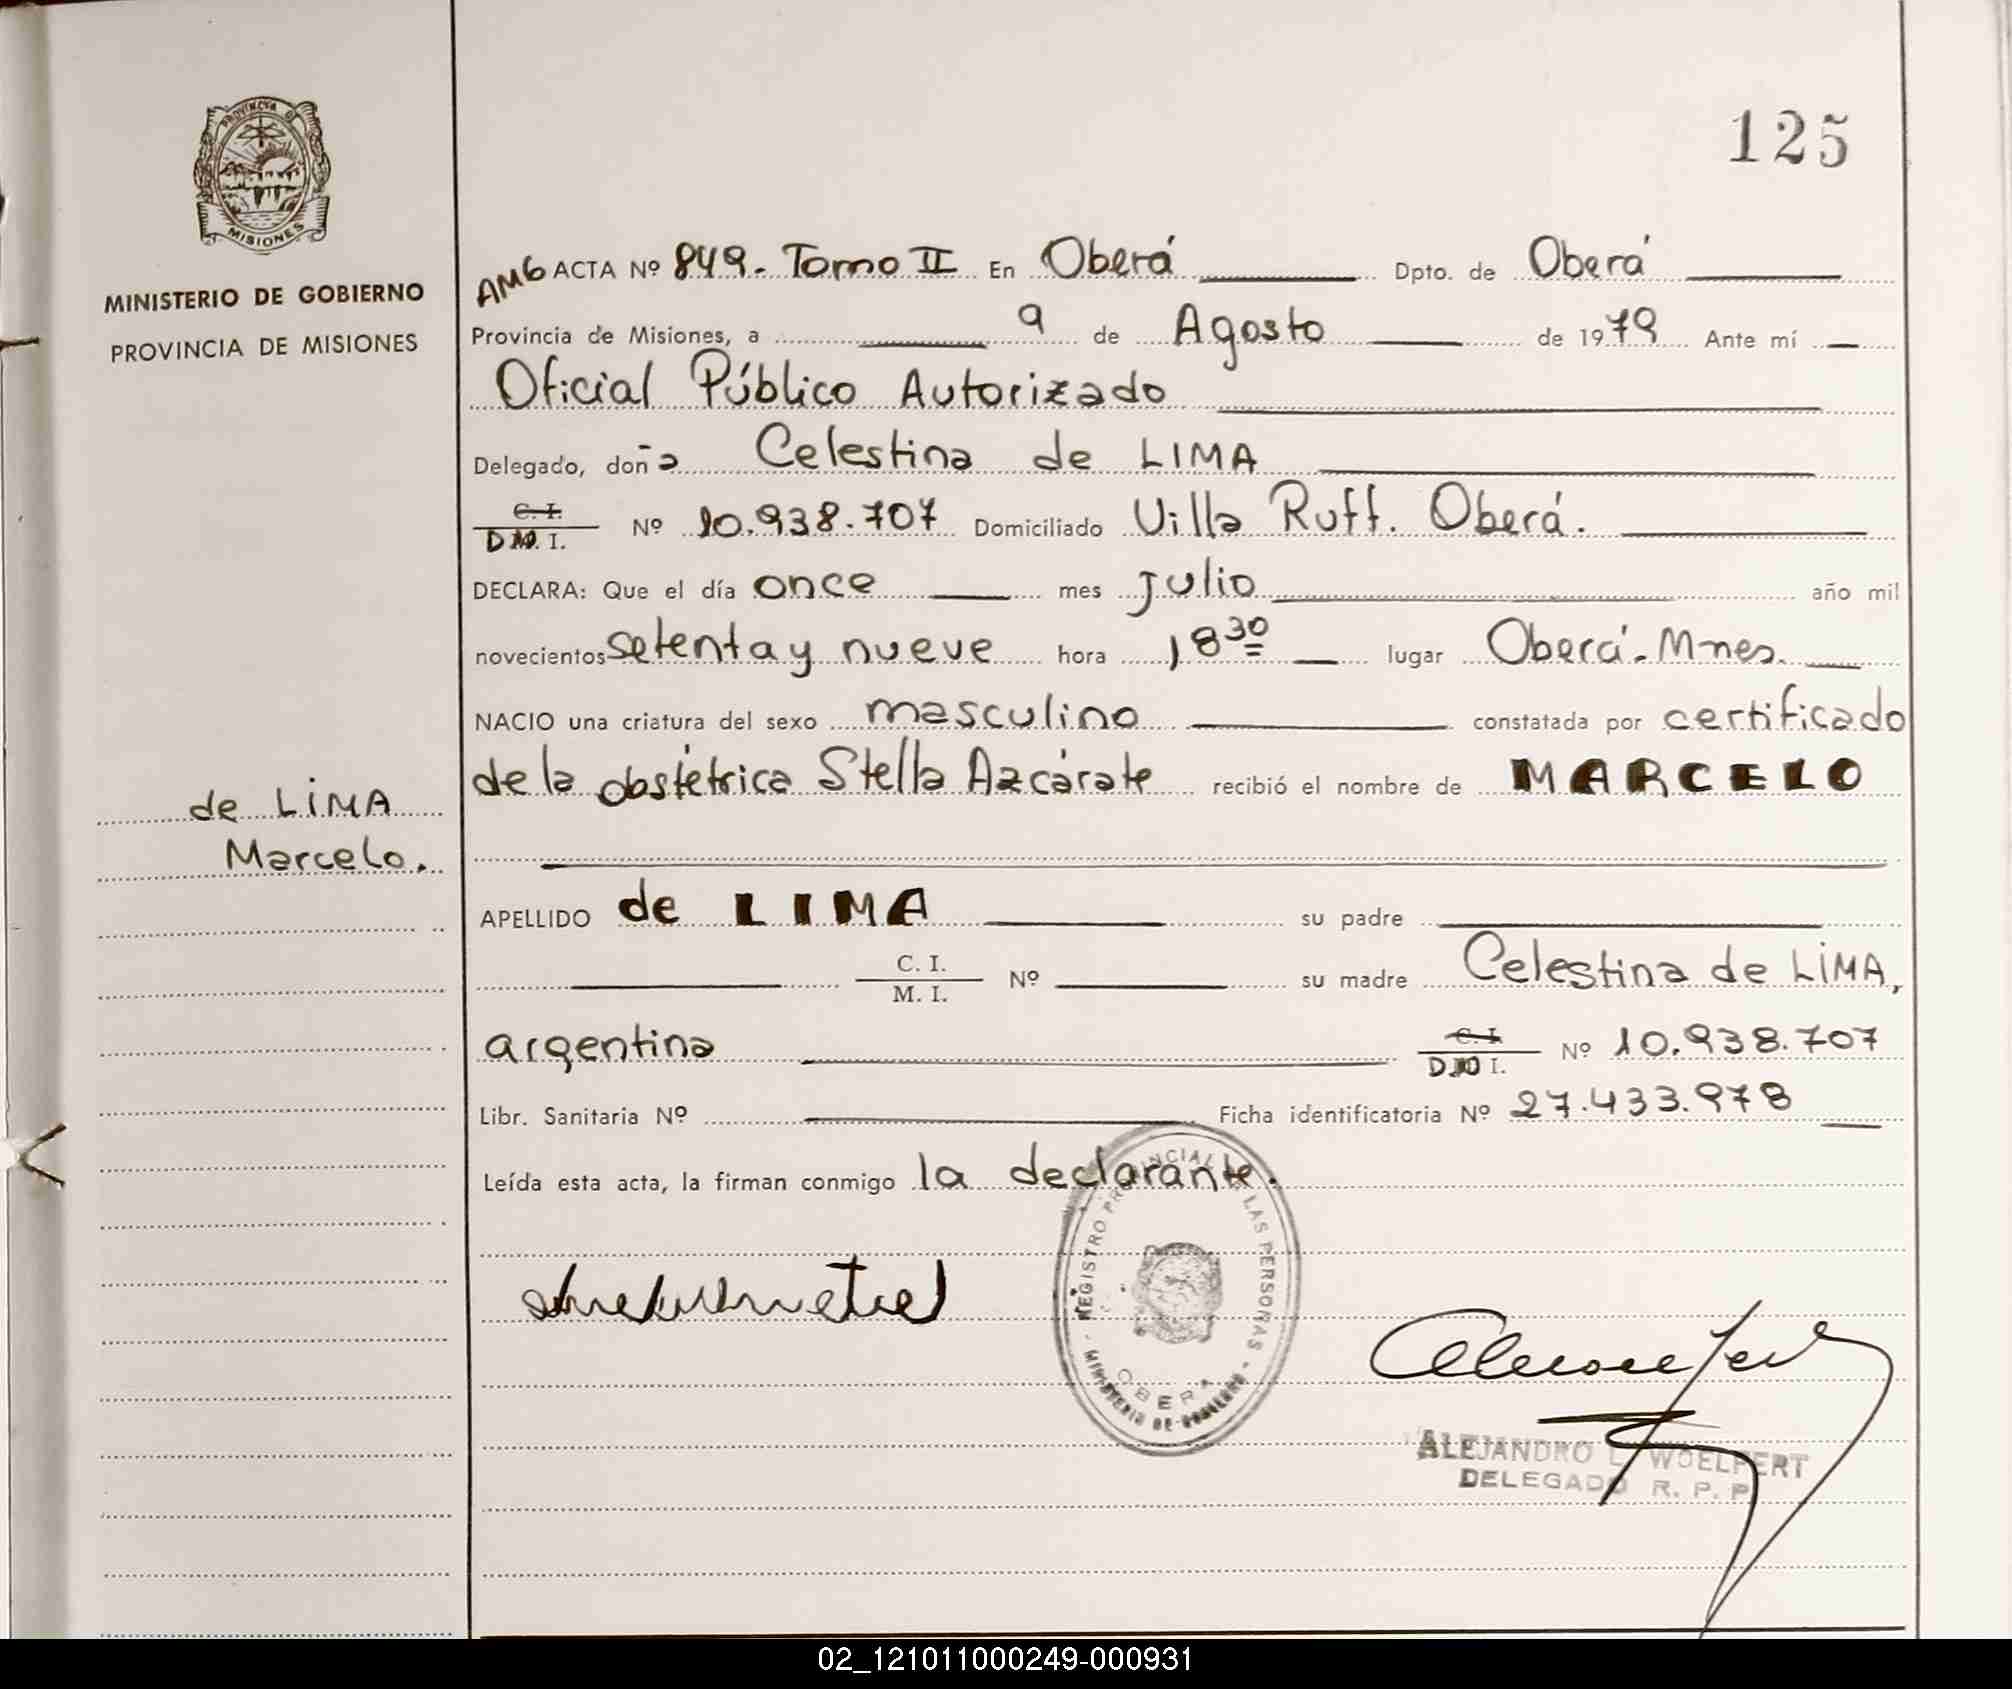 125
PROVINCIA DE
MISIONES
MINISTERIO DE GOBIERNO
PROVINCIA DE MISIONES
de LIMA
Marcelo.
AMG ACTA Nº 849.- Tomo II En Oberá Dpto. de Oberá
Provincia de Misiones, a 9 de Agosto de 1979 Ante mí
Oficial Público Autorizado
Delegado, doña Celestina de LIMA
C. I.
D.N.I. Nº 10.938.707 Domiciliado Villa Ruff. Oberá.
DECLARA: Que el día once mes Julio año mil
novecientos setenta y nueve hora 18 30 lugar Oberá.- M-nes.
NACIO una criatura del sexo masculino constatada por certificado
de la obstétrica Stella Azcárate recibió el nombre de MARCELO
APELLIDO de LIMA su padre
C. I.
M. I. Nº su madre Celestina de LIMA,
argentina C. I.
D.N.I. Nº 10.938.707
Libr. Sanitaria Nº Ficha identificatoria Nº 27.433.978
Leída esta acta, la firman conmigo la declarante.
REGISTRO PROVINCIAL DE LAS PERSONAS - MINISTERIO DE GOBIERNO -
OBERA
ALEJANDRO L. WOELFERT
DELEGADO R. P. P.
02_121011000249-000931